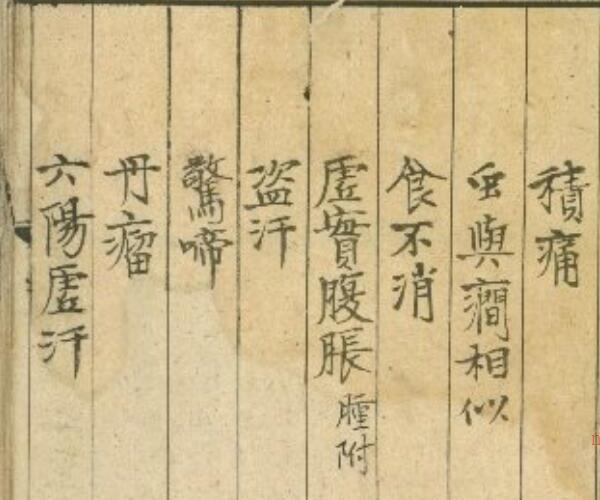 積痛
虫與癇相似
食不消
虛實腹脹 腫附
盗汗
驚啼
丹瘤
六陽虛汗